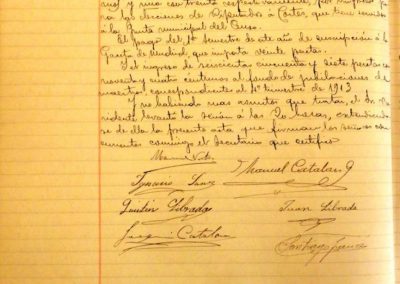 ra las elecciones de Diputados á Cortes, que tiene
la Junta municipal del Censo.
El pago del 1er semestre de este año de suscripción á la
Gaceta de Mendival que importa veinte pesetas.
Y el ingreso de seiscientas cincuenta y siete pesetas con
noventa y cuatro centimos al fondo de jubilaciones de
maestros, correspondientes al 1er trimestre de 1913
Y no habiendo mas asuntos que tratar, el Sr. Pre
sidente levantó la sesión á las horas, extendiendo
se de ella la presente acta que firman los señores con
currentes conmigo el Secretario que certifico
Manuel
Ignacio Sanz Manuel Catalan G
Quintin Librado Juan Librado
Catalan